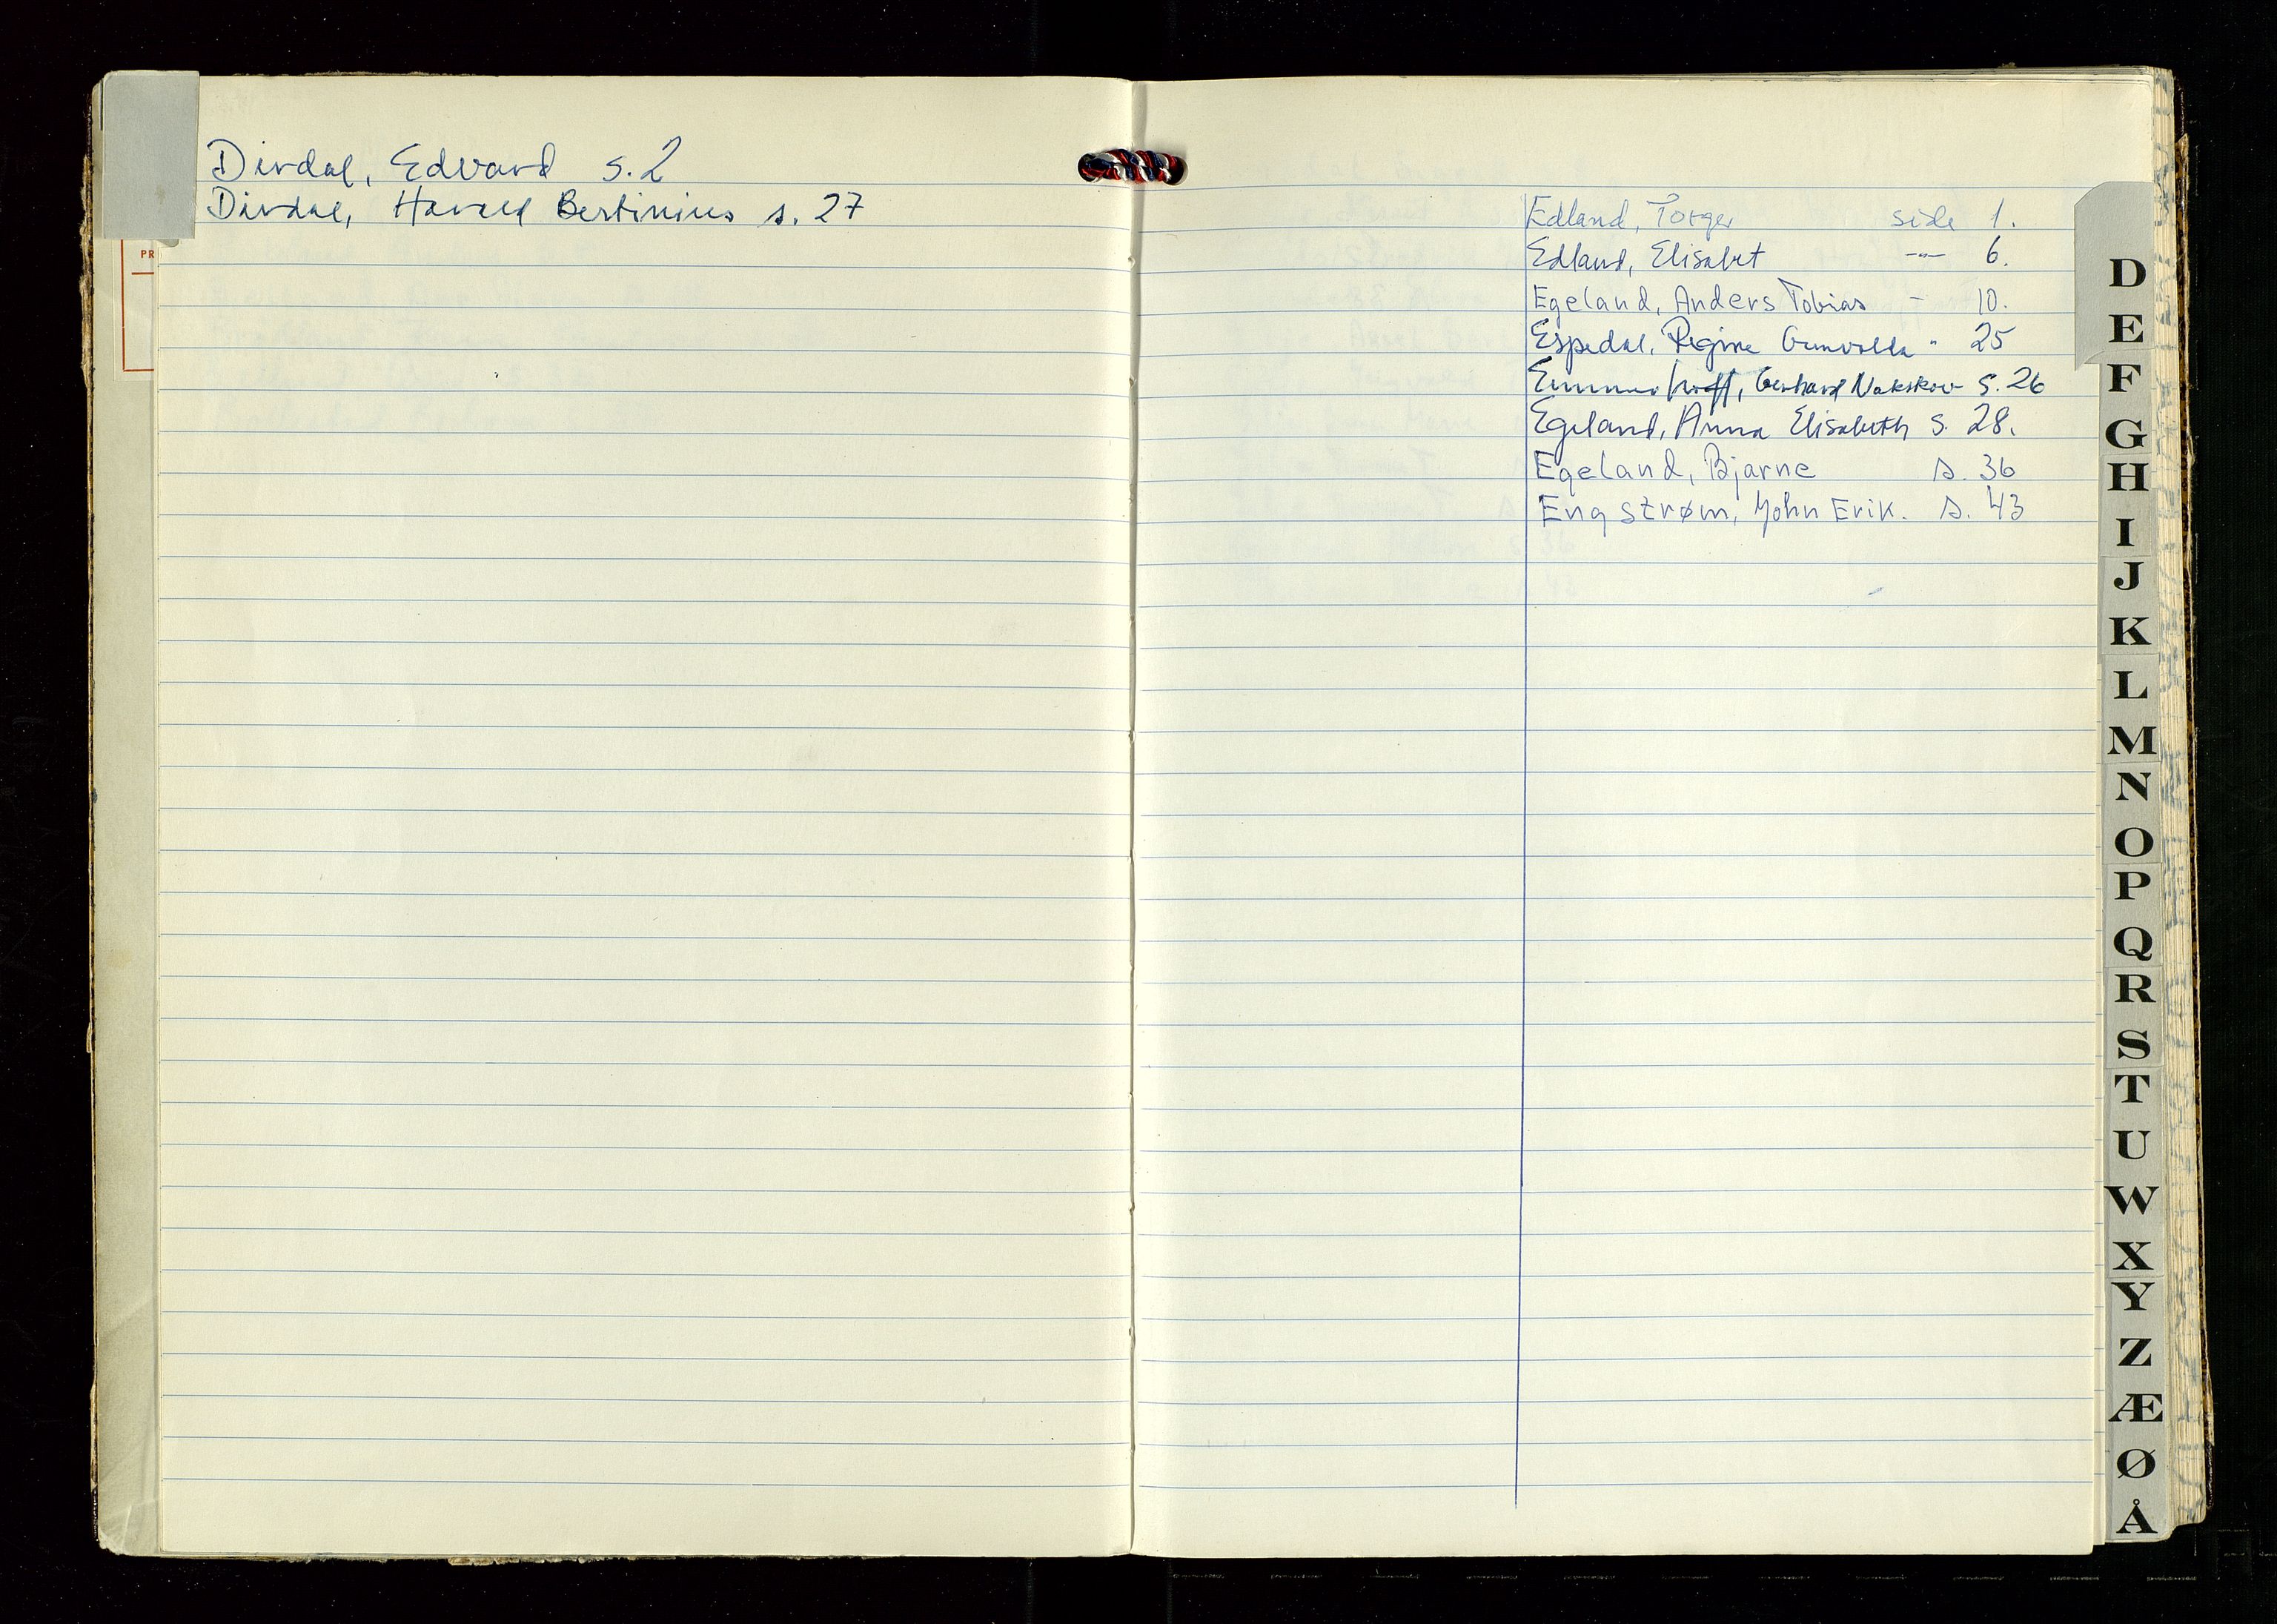 Dirdal, Edvard s. 2
Dirdal, Harald Bertinius s. 27
PR
Edland, Torger side 1.
Edland, Elisabet -"- 6.
Egeland, Anders Tobias - 10.
Espedal, Regine Gunvalda " 25
Gerhard Nakskov s. 26
Egeland, Anna Elisabeth s. 28.
Egeland, Bjarne s. 36
Engstrøm, John Erik. s. 43
D
E
F
G
H
I
J
K
L
M
N
O
P
Q
R
S
T
U
W
X
Y
Z
Æ
Ø
Å